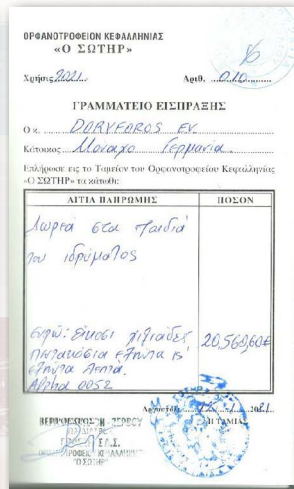 ΟΡΦΑΝΟΤΡΟΦΕΙΟΝ ΚΕΦΑΛΛΗΝΙΑΣ
«Ο ΣΩΤΗΡ»
Χρήσις 2021 Αριθ. 010
ΓΡΑΜΜΑΤΕΙΟ ΕΙΣΠΡΑΞΗΣ
Ο κ. DORYFOROS EV.
Κάτοικος Μόναχο Γερμανία
Επλήρωσε εις το Ταμείον του Ορφανοτροφείου Κεφαλληνίας
«Ο ΣΩΤΗΡ» τα κάτωθι:
ΑΙΤΙΑ ΠΛΗΡΩΜΗΣ ΠΟΣΟΝ
Δωρεά στα παιδιά
του ιδρύματος
είκοσι χιλιάδες 20,560,60€
πεντακόσια εξήντα κ'
εξήντα λεπτά.
Alpha 0052
Αργοστόλι
Η ΤΑΜΙΑΣ
"Ο ΣΩΤΗΡ"